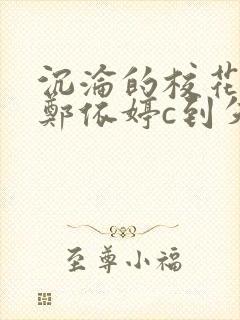 沉沦的校花
郑依婷c到失
至尊小福